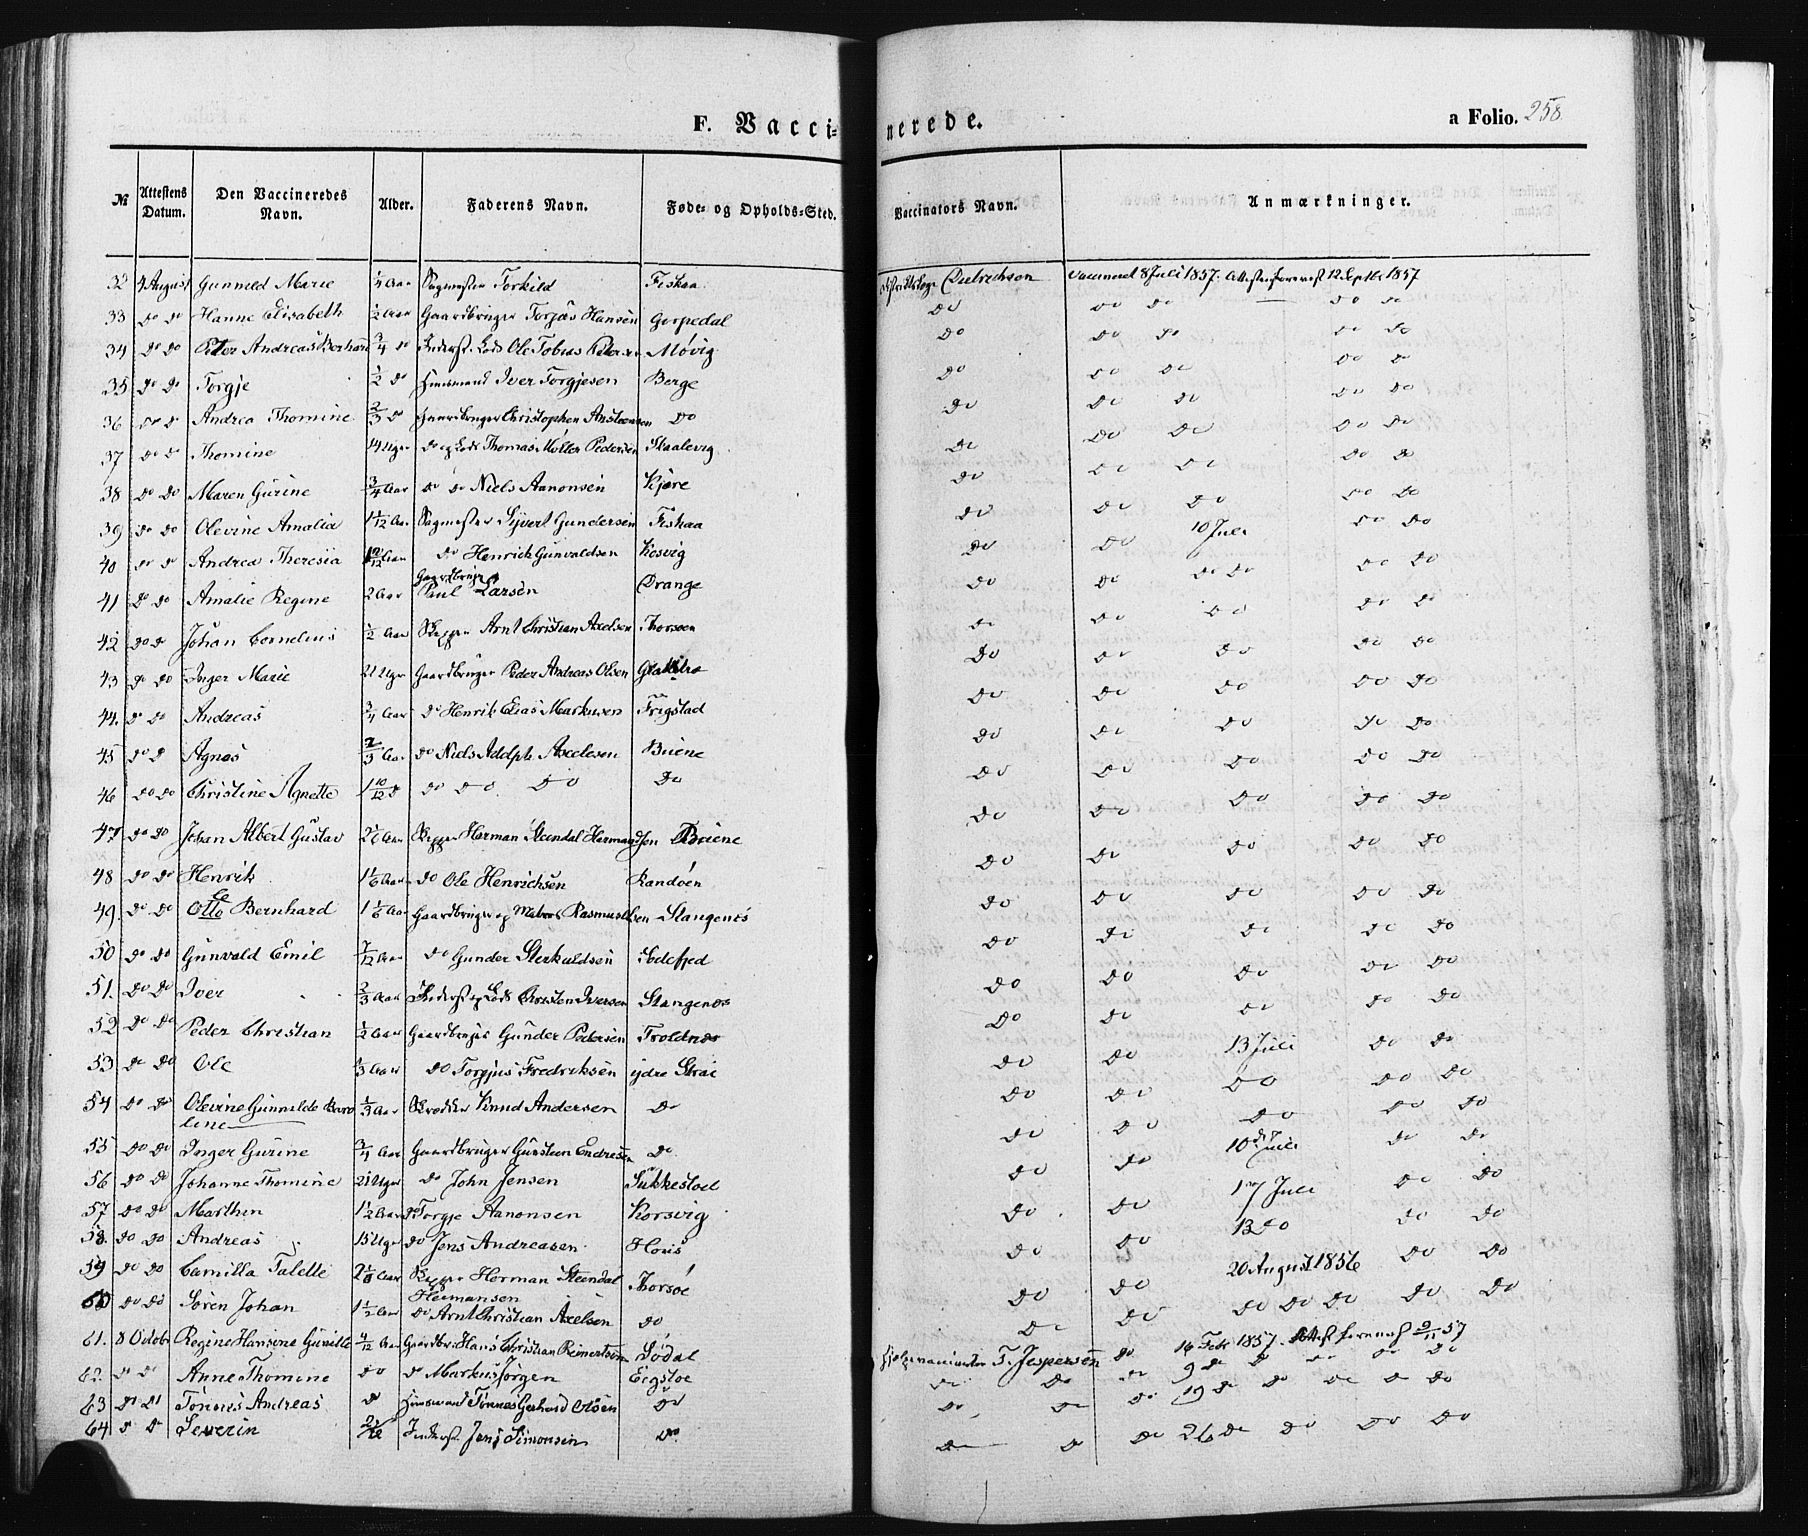 F. Vaccinerede.
a Folio. 258
№ Attestens Datum. Den Vaccineredes Navn. Alder. Faderens Navn. Føde- og Opholds-Sted. Vaccinators Navn. Anmærkninger.
32 4 August Gunnild Marie 1/4 Aar Sagmester Torkild Fiskaa Dietrichson Vaccineret 8 Juli 1857. 12 Septbr 1857
33 do do Hanne Elisabeth 1/2 Aar Gaardbruger Torjus Hansen Gorpedal do do do do do
34 do do Peter Andreas Berhard 3/4 do Ole Tobias Petersen Møvig do do do do do
35 do do Torgje 1/2 do Huusmand Iver Torgjesen Berge do do do do do
36 do do Andrea Thomine 2/3 do Gaardbruger Christopher Anstensen do do do do do do
37 do do Thomine 14 Uger do og Lods Thomas Møller Pedersen Skaalevig do do do do do
38 do do Maren Gurine 3/4 Aar do do Niels Aanonsen Kjære do do do do do
39 do do Olevine Amalia 1 1/12 Aar Sagmester Syvert Gundersen Fiskaa do do do do do
40 do do Andrea Theresia Aar do Henrich Gunvaldsen Kosvig do do 10 Juli do do
41 do do Amalie Regine 2 Aar Gaardbruger Paul Larsen Drange do do do do do do
42 do do Johan Cornelius 1/2 Aar Skipper Arnt Christian Axelsen Thorsøen do do do do do
43 do do Inger Marie 21 Uger Gaardbruger Peder Andreas Olsen do do do do do
44. do do Andreas 3/4 Aar do Henrik Elias Markusen Frigstad do do do do do
45 do do Agnes 2/3 Aar do Niels Adolph Axelsen Buene do do do do do
46 do do Christine Agnette 1 10/12 do do do do do do do do do do
47 do do Johan Albert Gustav Aar Skipper Herman Steendal Hermandsen Buene do do do do do
48 do do Henrik 1 1/6 Aar do Ole Henrichsen Randøen do do do do do
49 do do Otto Bernhard 1 1/6 Aar Gaardbruger og Matros Rasmus Olsen Stangenes do do do do do
50 do do Gunvald Emil 7/12 Aar do Gunder Sterkuldsen Kodefjed do do do do do
51. do do Iver 2/3 Aar og Lods Thorsten Iversen Stangenes do do do do do
52 do do Peder Christian 1/2 Aar Gaardbruger Gunder Pedersen Troldnes do do do do do
53 do do Ole 1/3 Aar do Torgius Fredriksen ydre Strai do do 13 Juli do do
54 do do Olevine Gunnilde Karoline 1/3 Aar Skrædder Knud Andersen do do do do do do
55 do do Inger Gurine 3/4 Aar Gaardbruger Gunsteen Endresen do do do do do do
56 do do Johanne Thomine 21 Uger do John Jensen Sukkestoel do do 10de Juli do do
57 do do Marthin 1 1/2 Aar do Torgje Aanonsen Korsvig do do 17 Juli do do
58. do do Andreas 15 Uger do Jens Andreasen do do 13 do do do
59 do do Camilla Talette 2 1/8 Aar Skipper Herman Steendal Hermansen Thorsøe do do 20 August 1856 do do
60 do do Søren Johan 1 1/2 Aar do Arnt Christian Axelsen do do do do do do do do
61. 8 Octobr Regine Hansine Gunilla 4/12 Aar Gaardbr. Hans Christian Reinertsen Sødal Hjelpevaccinator T. Jespersen do 16 Febr 1857. Attest fornevnt 9/11 57
62. do do Anne Thomine do do Markus Jørgen Eegstoe do do do 9 do do do do do
63 do do Tønnes Andreas do Huusmand Tønnes Gerhard Olsen do do do do 19 do do do do do
64 do do Severin Inderst Jens Simonsen do do do do 26 do do do do